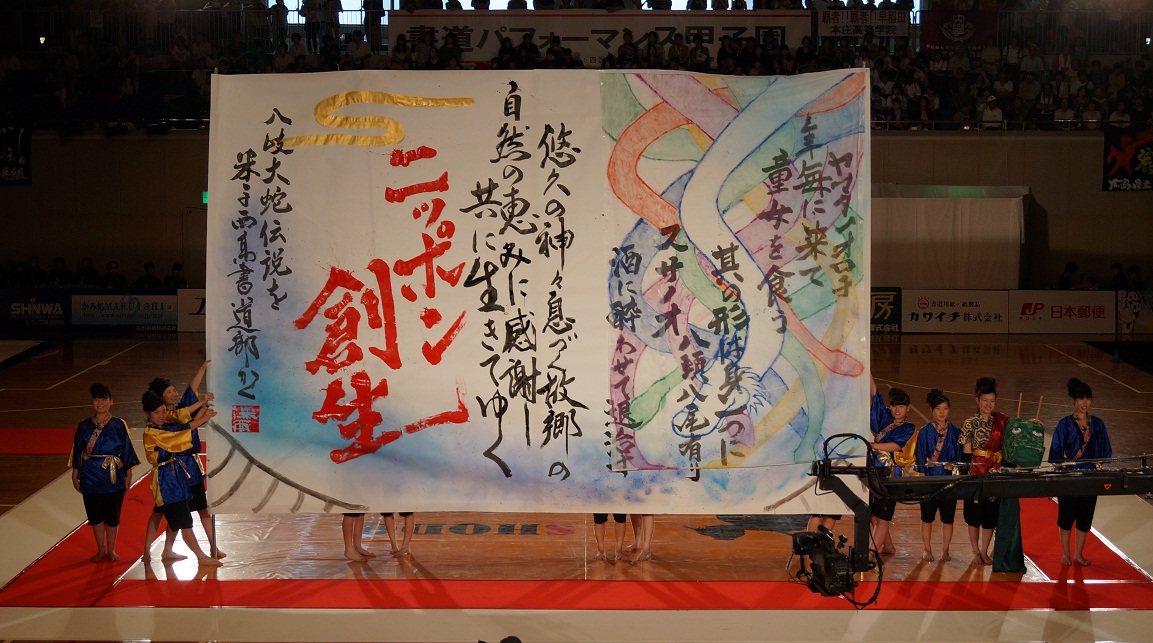 書道パフォーマンス甲子園
覇者!!覇者!!早稲田
本庄高等学院
ヤマタノオロチ
年毎に来て
童女を食う
其の形は身一つに
八頭八尾有り
スサノオ
酒に酔わせて退治す
悠久の神々息づく故郷の
自然の恵みに感謝し
共に生きてゆく
ニッポン
創生
八岐大蛇伝説を
米子西高書道部かく
SHINWA
かみ処MARUISHI
房
株式会社
カワイチ株式会社
JP
POST
日本郵便